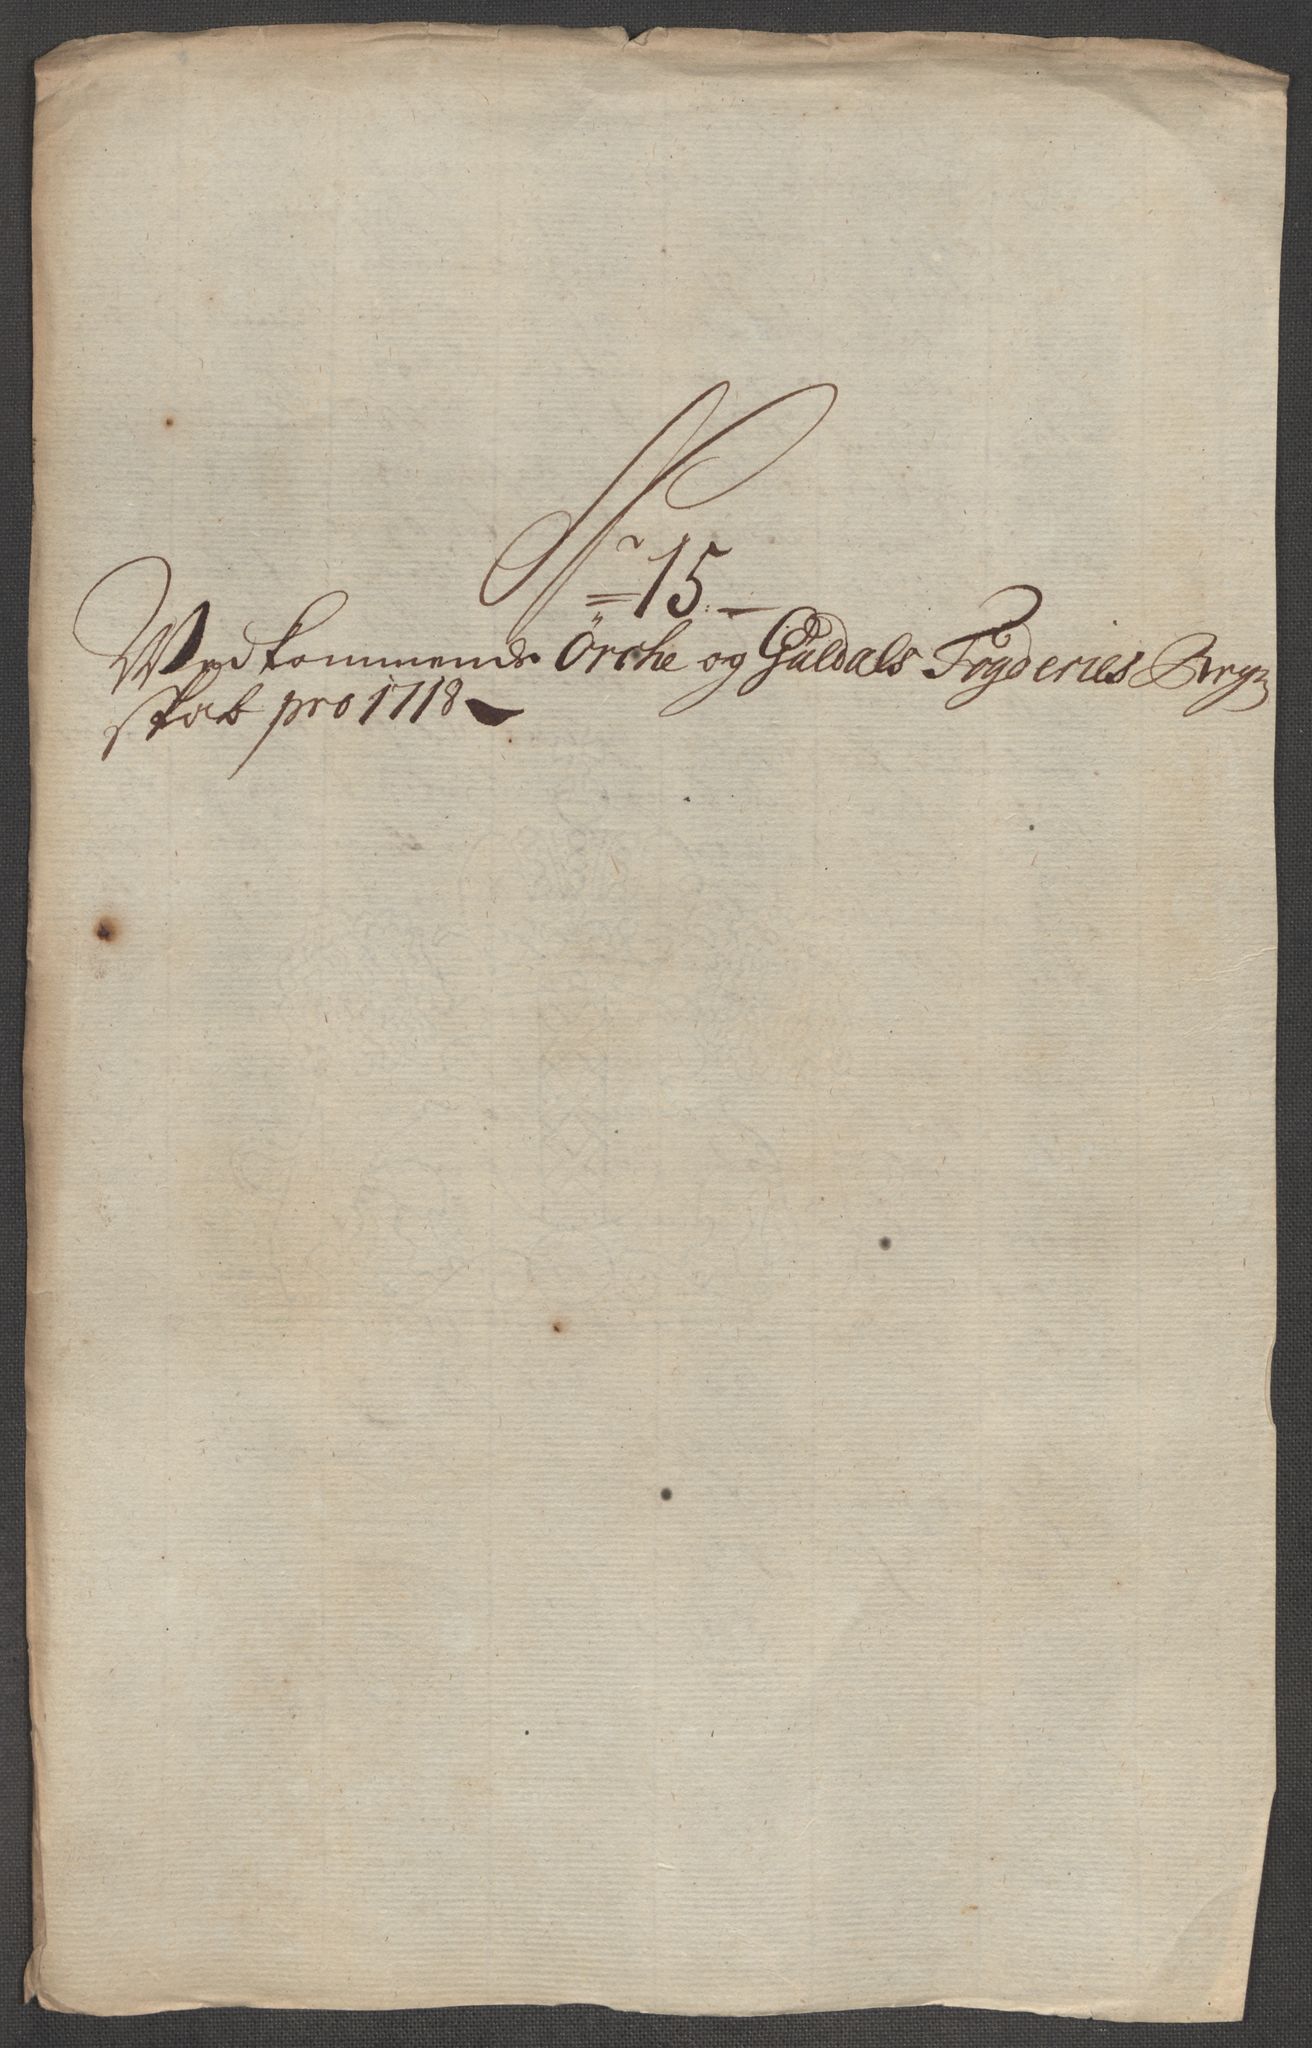 Nr 15.
Vedkommende Örche og Guldals Fogderies Regn
skab pro 1718